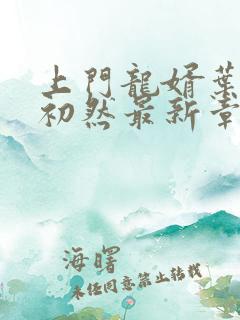 上門龍婿葉
初然最新章
海曙
未经同意禁止转载